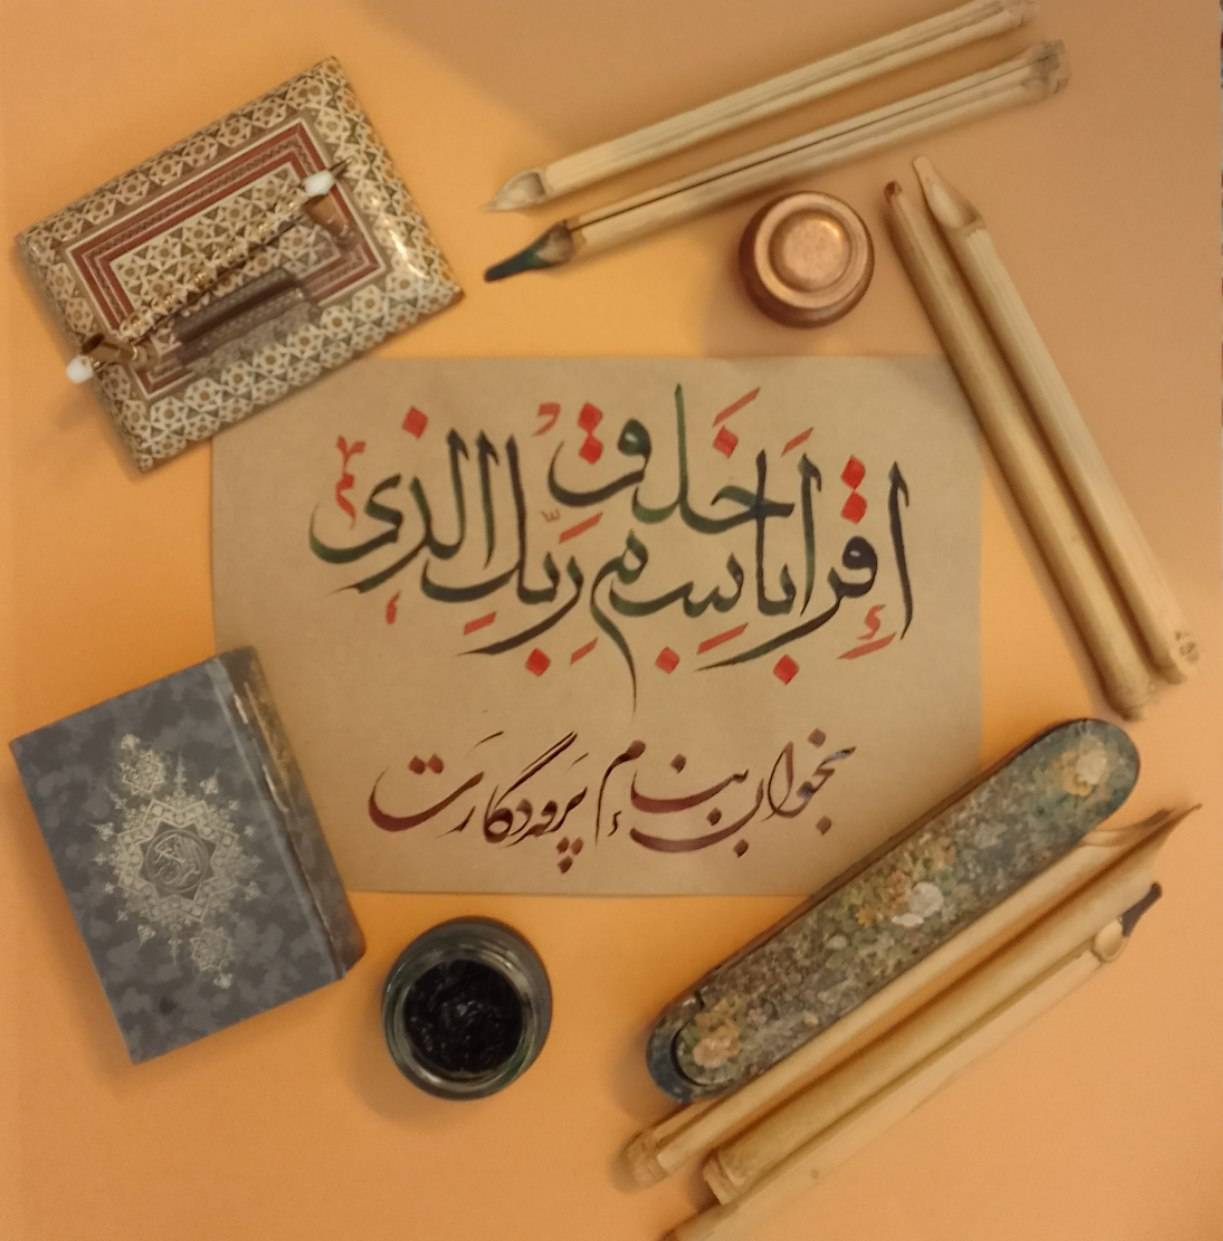 إقرا باسم ربك الذی خلق
بخوان بنام پروردگارت